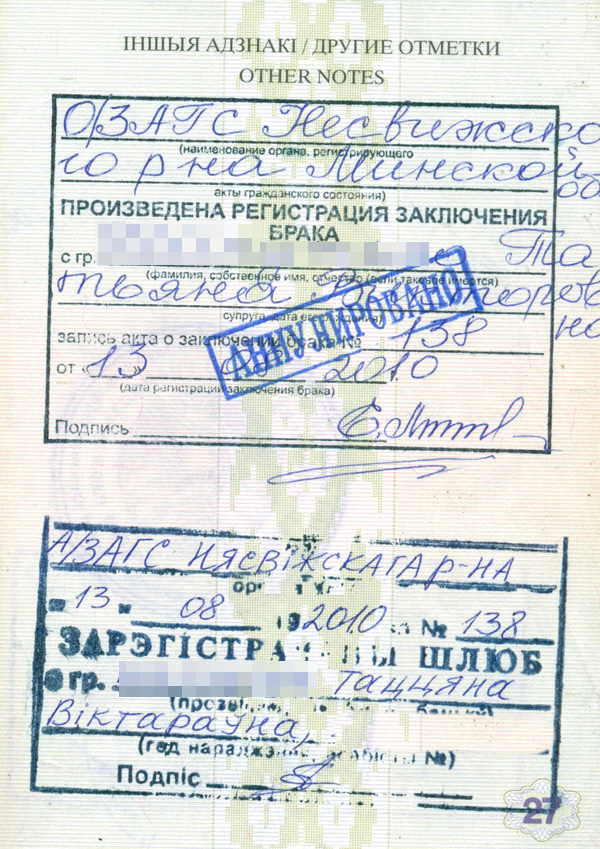 ІНШЫЯ АДЗНАКІ / ДРУГИЕ ОТМЕТКИ
OTHER NOTES
О/ЗАГС Несвижско
(наименование органа, регистрирующего
го р-на Минской об
акты гражданского состояния)
ПРОИЗВЕДЕНА РЕГИСТРАЦИЯ ЗАКЛЮЧЕНИЯ
БРАКА
с гр. Та
(фамилия, собственное имя, отчество (если таковое имеется)
тьяна
супруга, дата его рождения)
АННУЛИРОВАНО
запись акта о заключении брака № 138
от «13» 2010
(дата регистрации заключения брака)
Подпись
А/ЗАГС НЯСВІЖСКАГА Р-НА
"13" 08 192010 № 138
ЗАРЭГІСТРАВАНЫ ШЛЮБ
з гр. ТАЦЦЯНА
ВІКТАРАЎНА,
(год нараджэння, асабісты №)
Подпіс
27